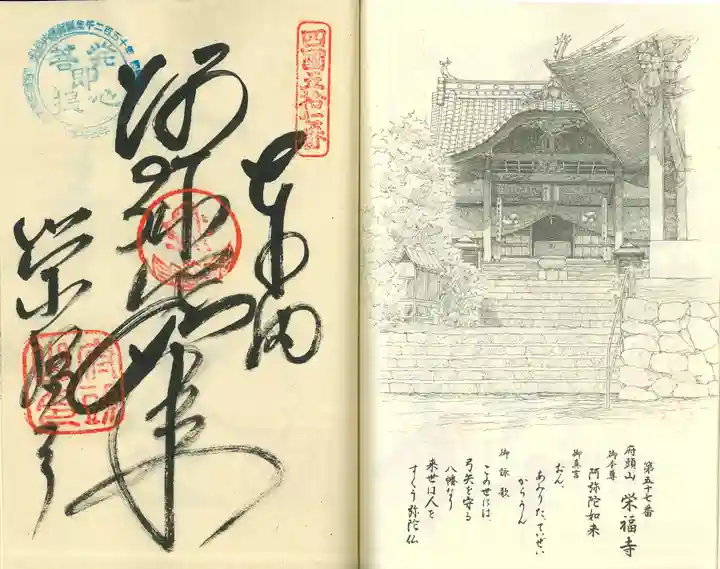 第五十七番
府頭山 栄福寺
御本尊
阿弥陀如来
御真言
おん、
あみりた、ていぜい
からうん
御詠歌
この世には
弓矢を守る
八幡なり
来世は人を
すくう弥陀仏
奉納
阿弥陀如来
栄福寺